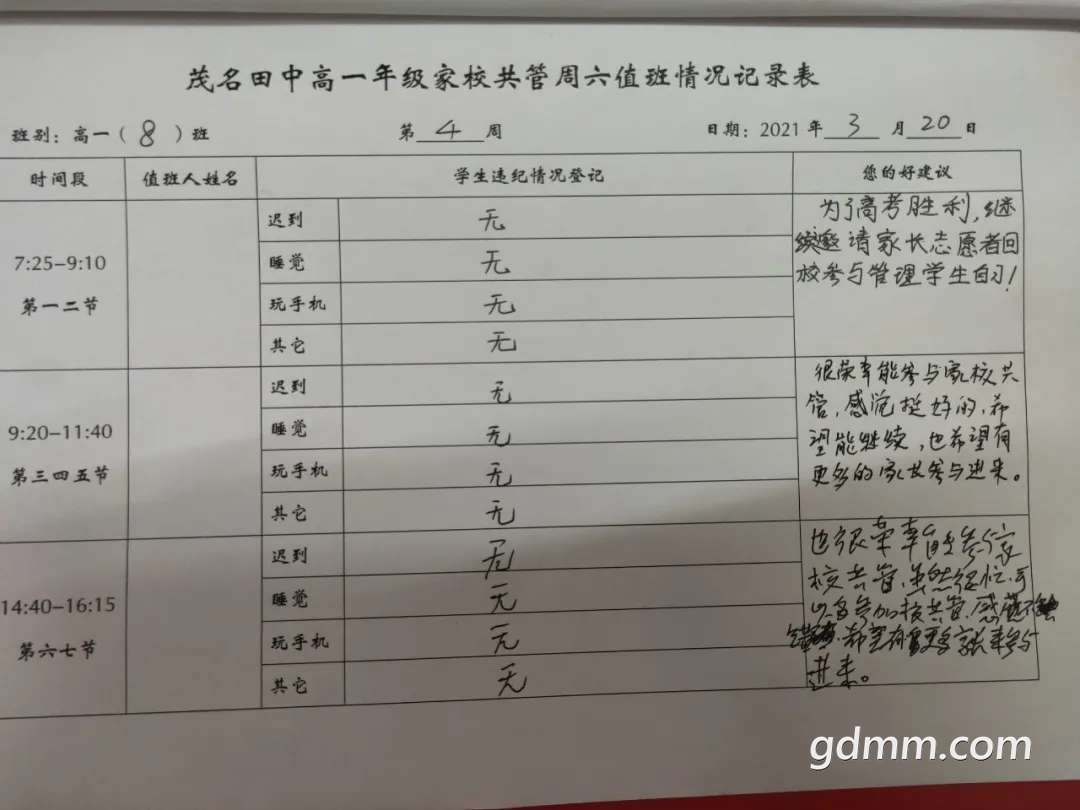 茂名田中高一年级家校共管周六值班情况记录表
班别：高一（8）班 第 4 周 日期：2021 年 3 月 20 日
时间段 值班人姓名 学生违纪情况登记 您的好建议
7:25–9:10
第一二节
迟到 无
睡觉 无
玩手机 无
其它 无
为了高考胜利，继
续邀请家长志愿者回
校参与管理学生自习！
9:20–11:40
第三四五节
迟到 无
睡觉 无
玩手机 无
其它 无
很荣幸能参与家校共
管，感觉挺好的，希
望能继续，也希望有
更多的家长参与进来。
14:40–16:15
第六七节
迟到 无
睡觉 无
玩手机 无
其它 无
也很荣幸能参与家
校共管，虽然很忙，可
以多参加校共管，感
希望有更多家长来参与
进来。
gdmm.com